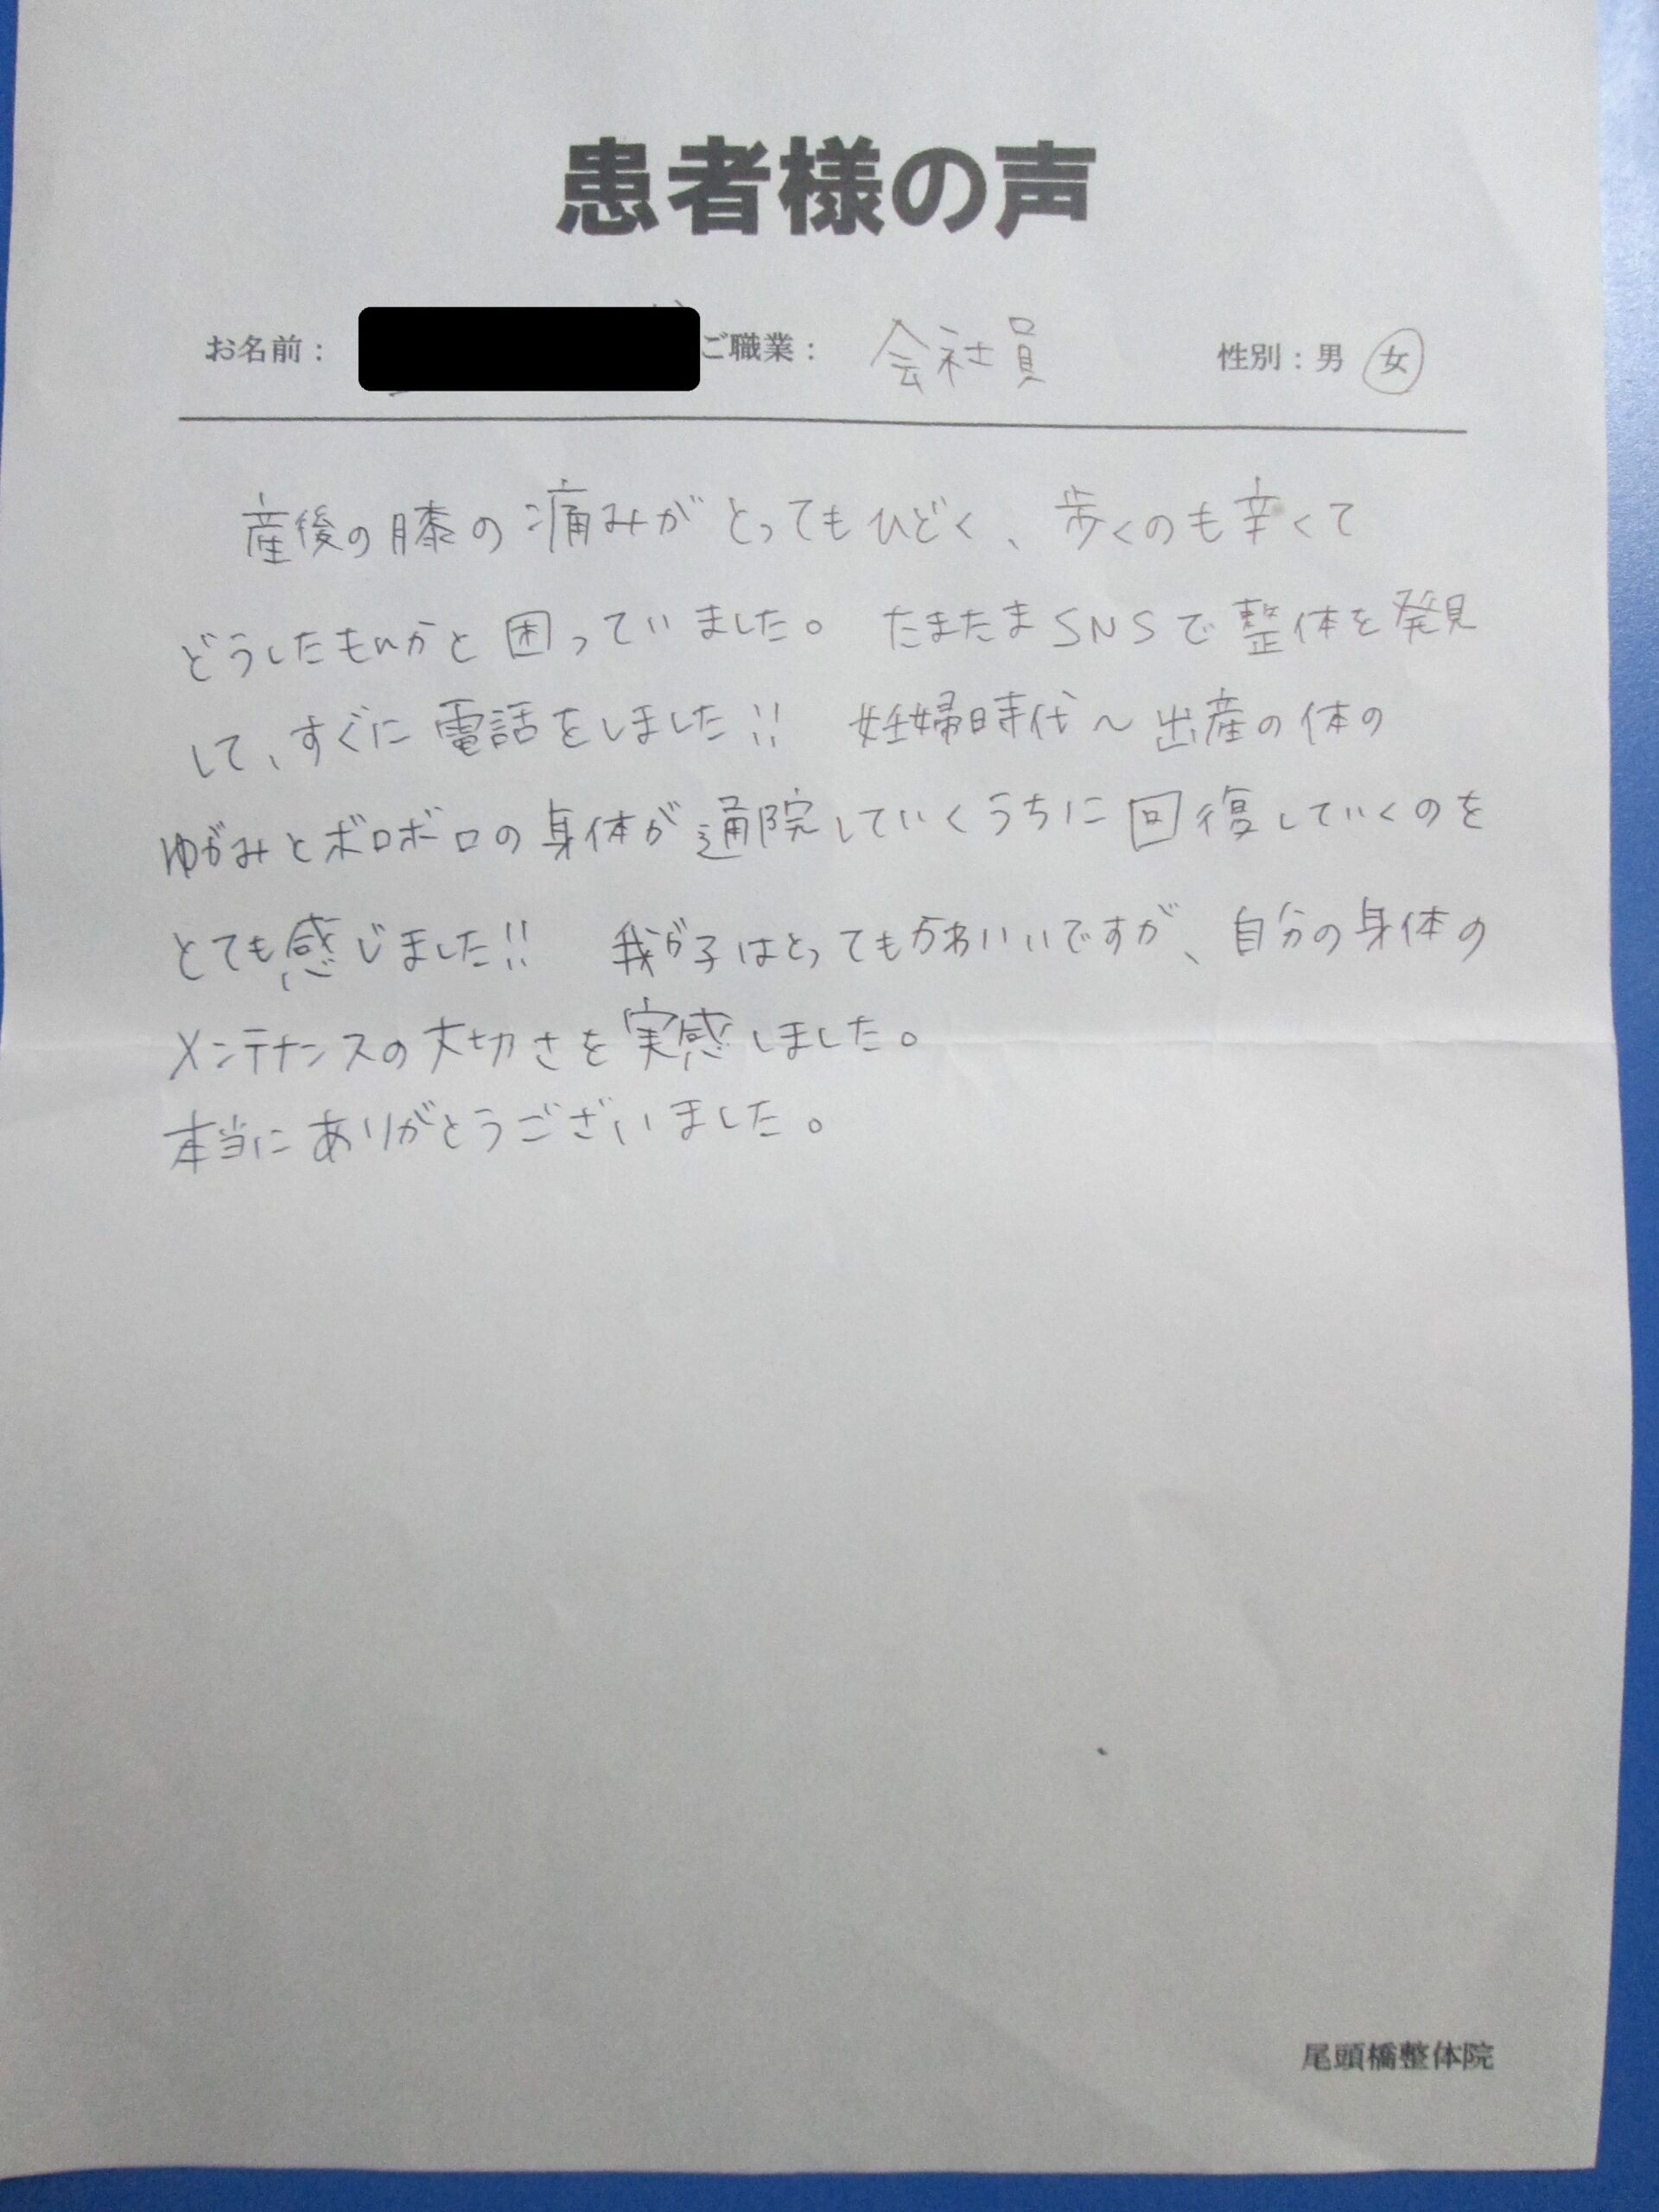 患者様の声
お名前： ご職業： 会社員 性別：男 女
産後の膝の痛みがとってもひどく、歩くのも辛くて
どうしたものかと困っていました。 たまたまSNSで整体を発見
して、すぐに電話をしました!! 妊婦時代～出産の体の
ゆがみとボロボロの身体が通院していくうちに回復していくのを
とても感じました!! 我が子はとってもかわいいですが、自分の身体の
メンテナンスの大切さを実感しました。
本当にありがとうございました。
尾頭橋整体院